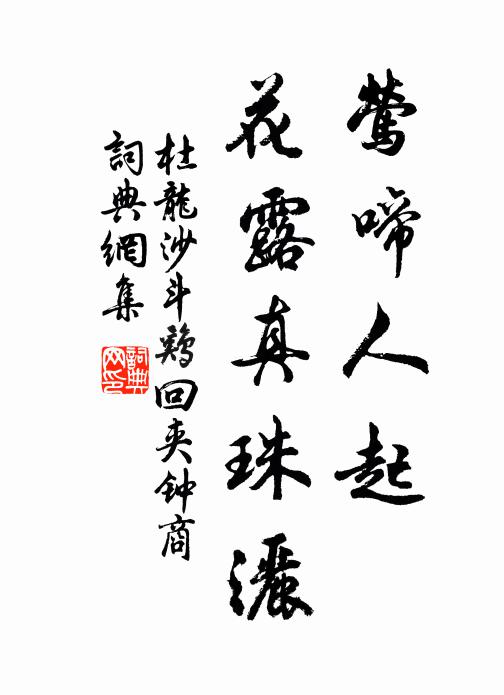 鶯啼人起
花露真珠灑
杜龍沙斗鷄回夾钟商
詞典網集
詞典网印